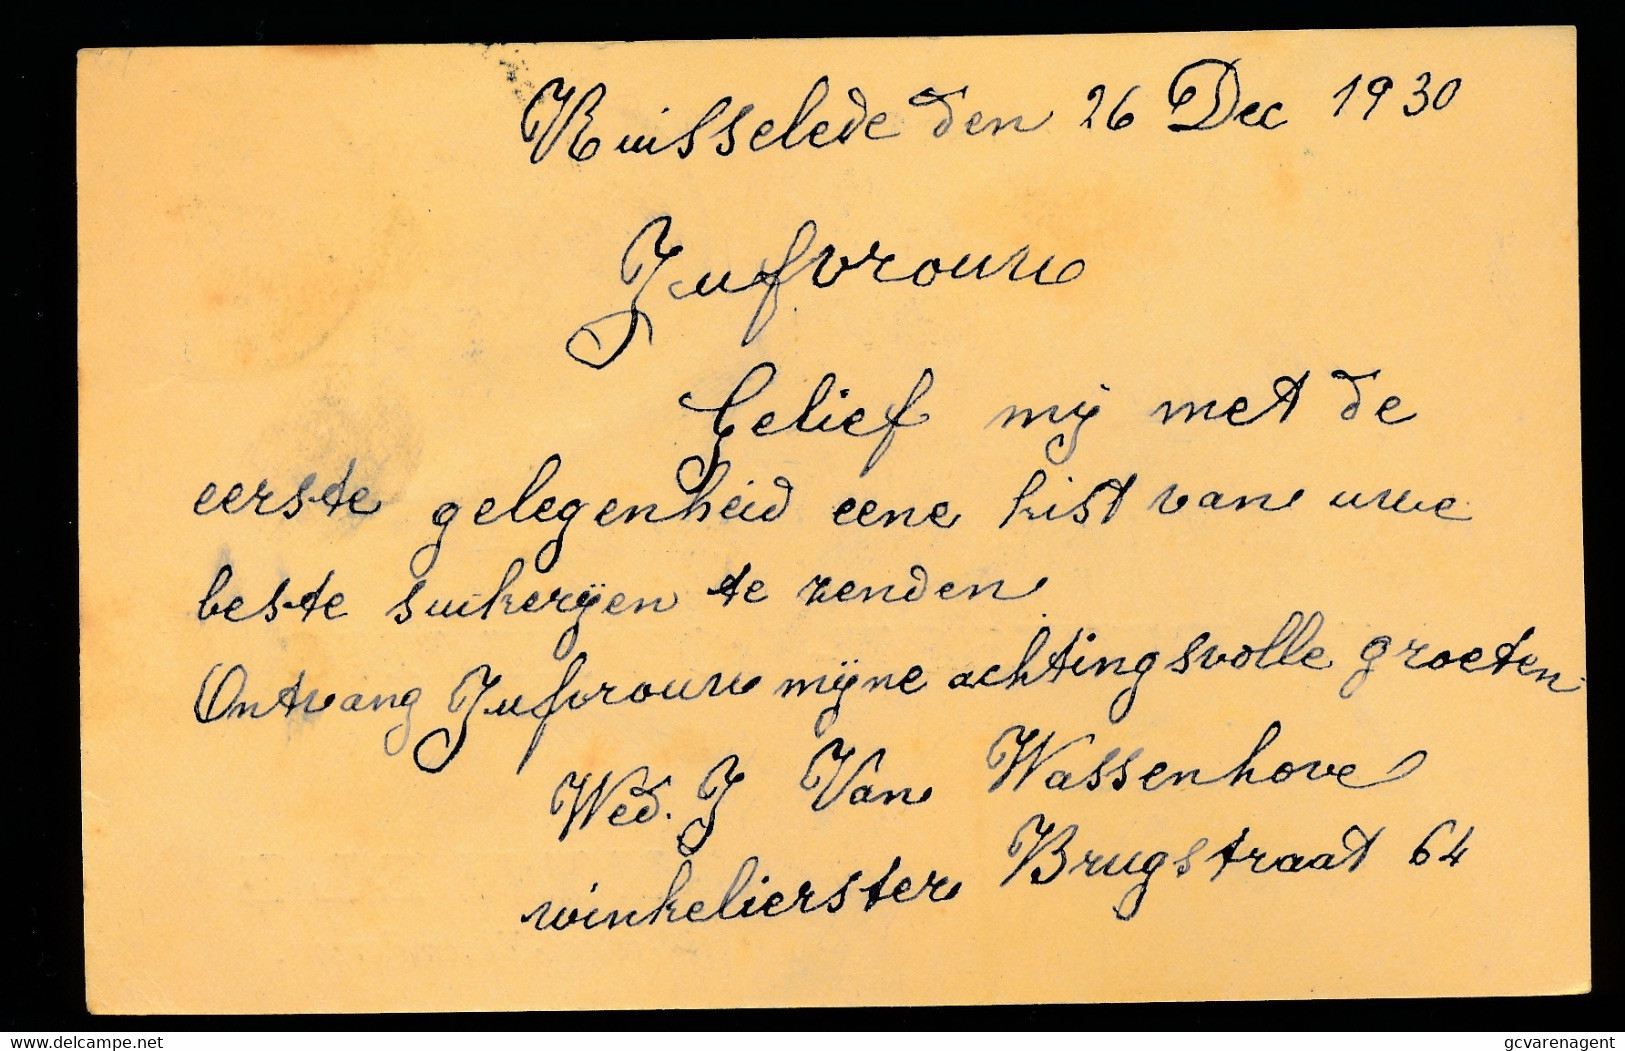 Ruisselede den 26 Dec 1930
Jufvrouw
Gelief mij met de
eerste gelegenheid eene kist van uwe
beste suikerijen te zenden
Ontvang Jufvrouw mijne achtingsvolle groeten
Wed. J Van Wassenhove
winkelierster Brugstraat 64
www.delcampe.net
gcvarenagent